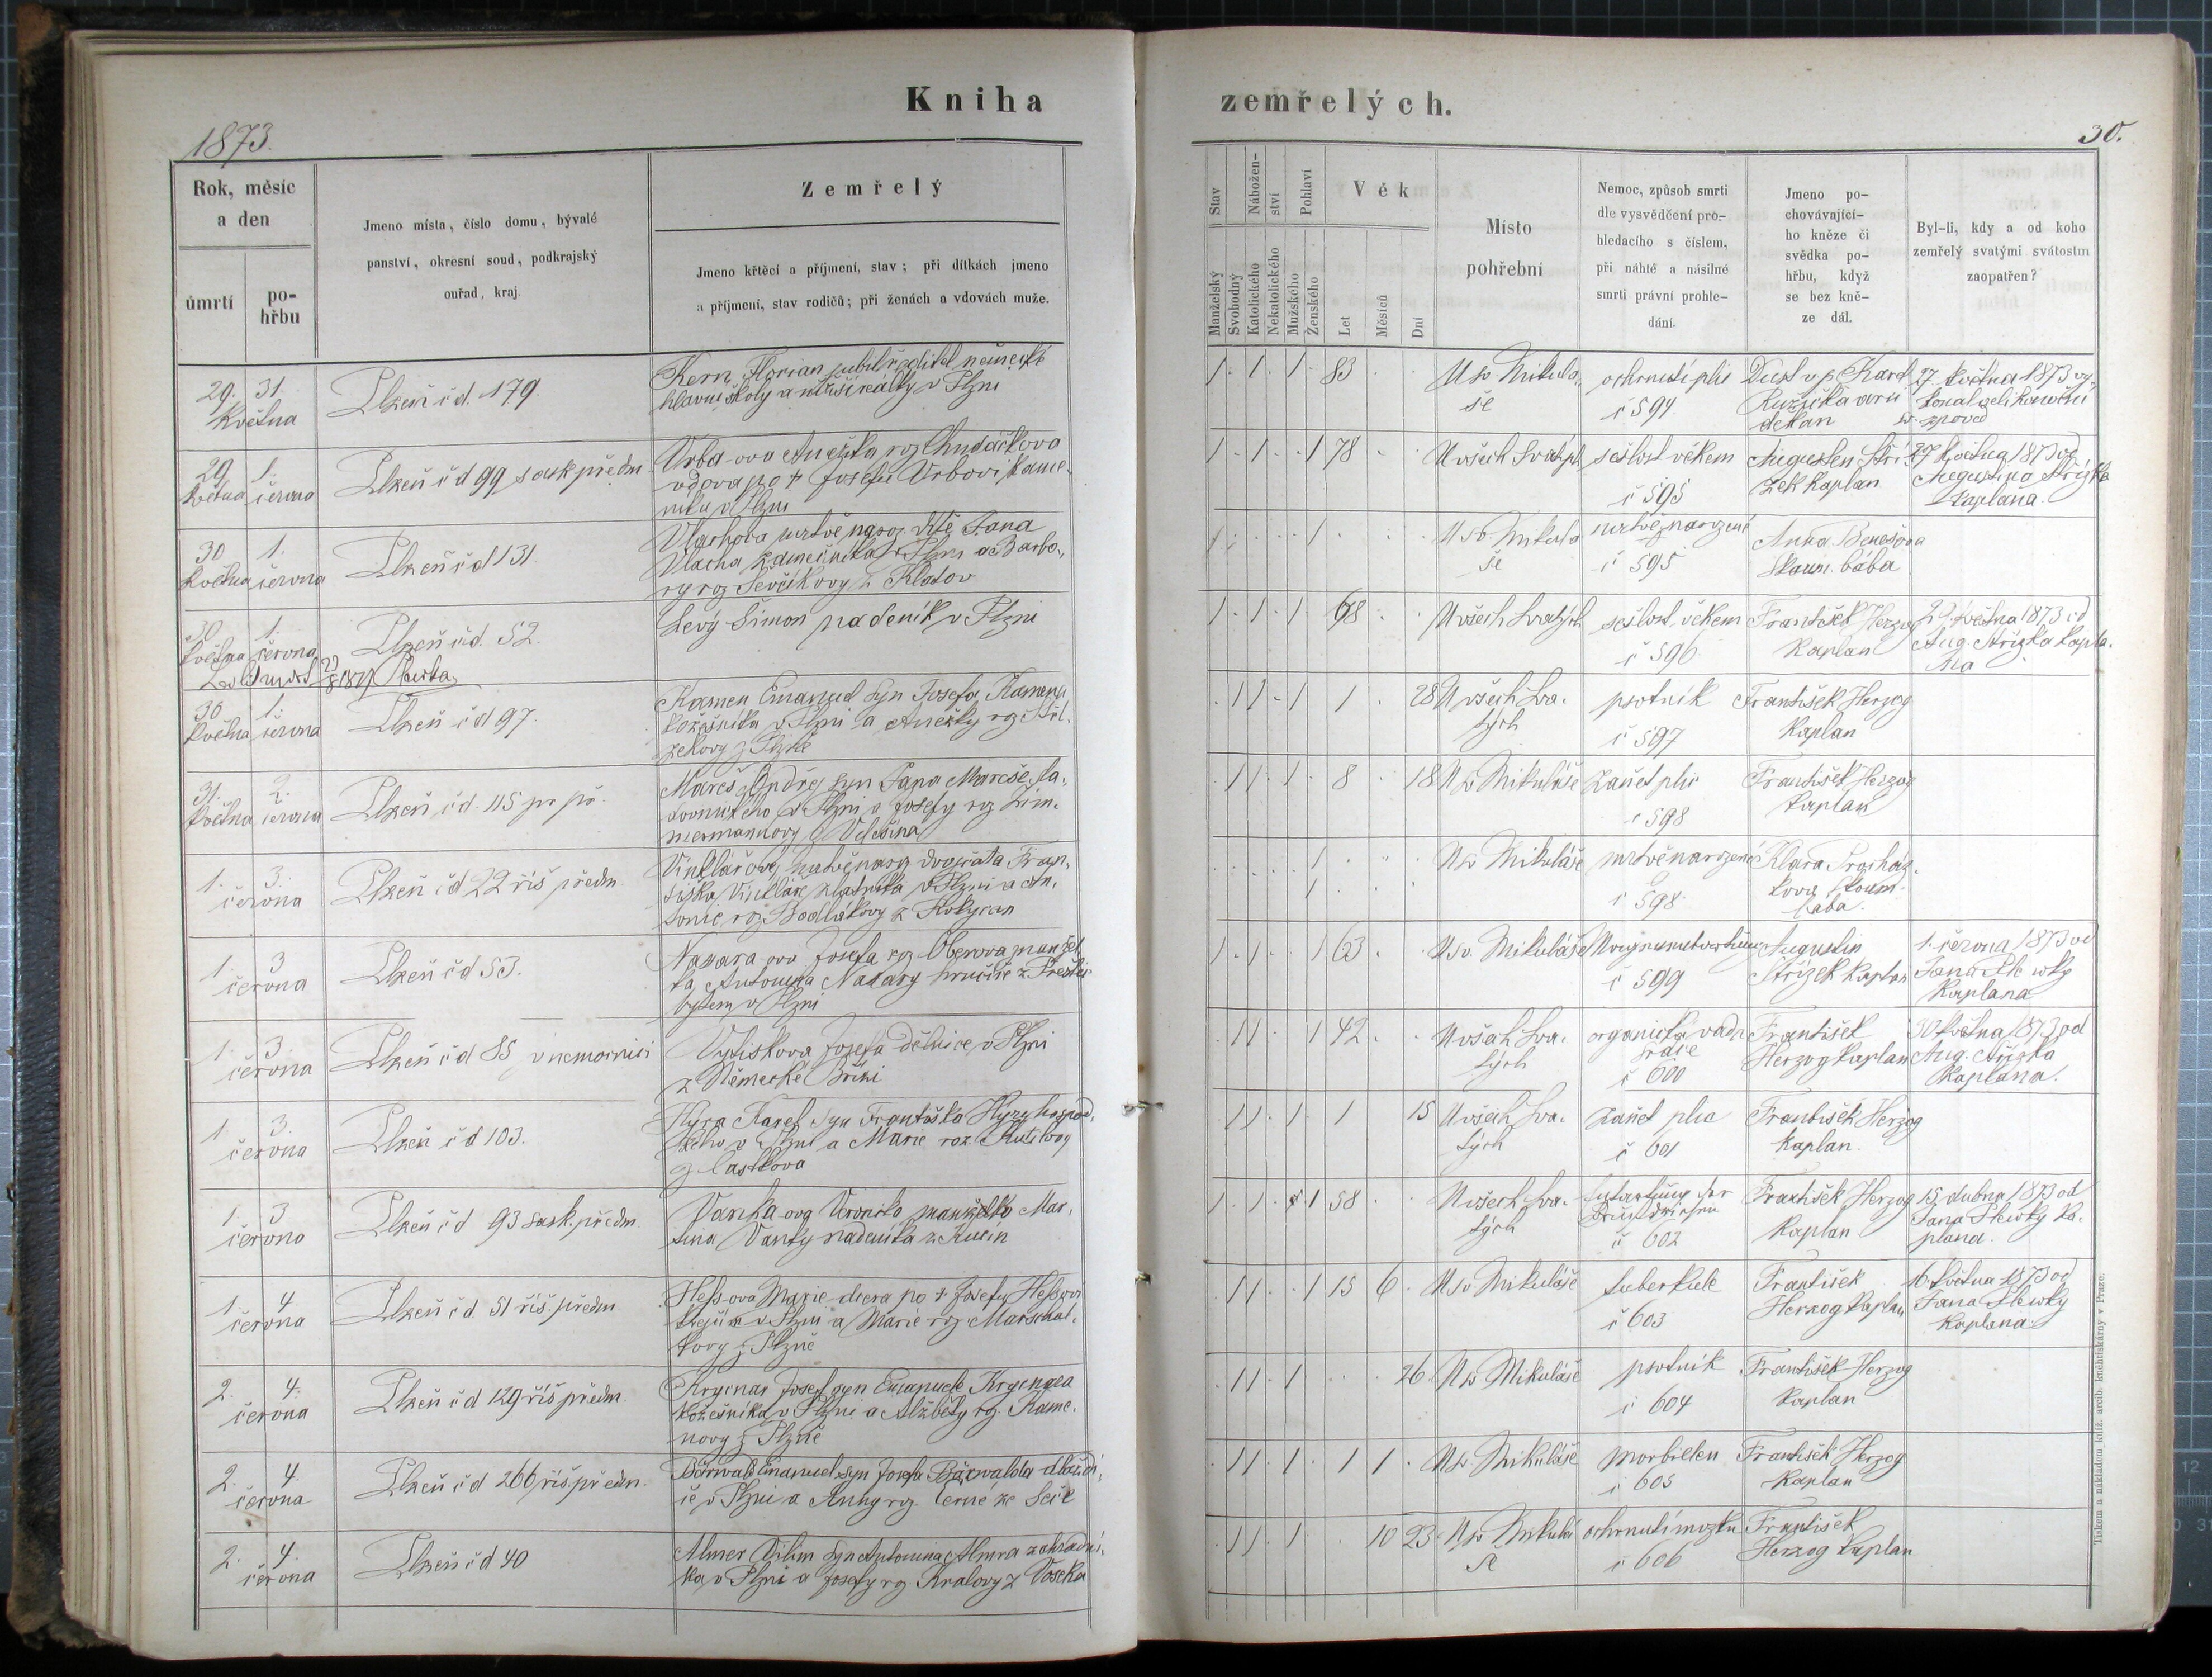 Kniha
zemřelých.
1873.
30.
Rok, měsíc
a den
úmrtí
po-
hřbu
Jmeno místa, číslo domu, bývalé
panství, okresní soud, podkrajský
ouřad, kraj.
Zemřelý
Jmeno křtěcí a příjmení, stav; při dítkách jmeno
a příjmení, stav rodičů; při ženách a vdovách muže.
Stav
Nábožen-
ství
Pohlaví
Věk
Manželský
Svobodný
Katolického
Nekatolického
Mužského
Ženského
Let
Měsíců
Dní
Místo
pohřební
Nemoc, způsob smrti
dle vysvědčení pro-
hledacího s číslem,
při náhlé a násilné
smrti právní prohle-
dání.
Jmeno po-
chovávající-
ho kněze či
svědka po-
hřbu, když
se bez kně-
ze dál.
Byl-li, kdy a od koho
zemřelý svatými svátostmi
zaopatřen?
29. 31.
Května
Plzeň č d. 179.
Kern Florian jubil ředitel německé
hlavní školy a nižší reálky v Plzni
1 1 1 83
U sv Mikulá
še
ochrnutí plic
č 594
Karel
Růžička
děkan
27 května 1873
zpověd
29 1.
Května června
Plzeň č d 99 sask předm.
Vrba ova Anežka roz Chudáčkova
vdova po + Josefu Vrbovi kame
níku v Plzni
1 1 1 78
U všech Svatých
sešlost věkem
č 595
Augustin Stří
zek kaplan
27 Května 1873 od
Augustina Střízka
kaplana.
30 1.
Května června
Plzeň č d 131.
Vlachova mrtvě naroz dítě Jana
Vlacha zámečníka v Plzni a Barbo
ry roz Ševčíkovy z Klatov
U sv. Mikulá
še
mrtvě narozené
č 595
Anna Benešova
zkoum. bába
30 1.
Května června
Plzeň čd. 52.
Levý Šimon nádeník v Plzni
1 1 1 68
U všech Svatých
sešlost věkem
č 596
František Herzog
Kaplan
29 května 1873 od
Aug. Střízka kapla
na
30 1.
Května června
Plzeň č d 97.
Kamen Emanuel syn Josefa Kamena
kožešníka v Plzni a Anežky roz
1 1 1 1 28
U všech Sva
tých
psotník
č 597
František Herzog
Kaplan
31. 2.
Května června
Plzeň č d. 115 pr př.
Mareš Ondřej syn Jana Mareše
v Plzni a Josefy roz Zim
mermannovy z Velešína
1 1 1 8 18
U sv Mikuláše
Zánět plic
č 598
František Herzog
kaplan
1. 3.
června
Plzeň č d 22 říš předm
Vinklářovy mrtvě naroz dvojčata Fran
tiška Vinkláře zlatníka v Plzni a An
tonie roz Bodlákovy z Rokycan
U sv Mikuláše
mrtvě narozené
č 598
Klara Procház
kova zkoum
baba.
1. 3
června
Plzeň č d 53.
Navara ova Josefa roz Oberova manžel
ka Antonína Navary hrnčíře z Přeštic
bytem v Plzni
1 1 1 63
U sv. Mikuláše
č 599
Augustin
Střízek kaplan
1. června 1873 od
Jana Plevky
Kaplana
1. 3.
června
Plzeň č d 85 v nemocnici
Vytiskova Josefa dělnice v Plzni
z Německé Břízi
1 1 1 42
U všech Sva
tých
organická vada
srdce
č 600
František
Herzog kaplan
30 května 1873 od
Aug. Střízka
Kaplana.
1. 3.
června
Plzeň č d 103.
Hýra Karel syn Františka Hýry
v Plzni a Marie roz
1 1 1 1 15
U všech Sva
tých
zánět plic
č 601
František Herzog
kaplan.
1. 3
června
Plzeň č d 93 sask. předm.
Vanka ova Veronika manželka Mar
tina Vanky nádeníka z Kucín
1 1 1 58
U všech Sva
tých
č 602
František Herzog
Kaplan
15 dubna 1873 od
Jana Plevky ka
plana.
1. 4
června
Plzeň č d 51 říš. předm
Hess ova Marie dcera po + Josefu Hessovi
krejčím v Plzni a Marie roz Marschal
kovy z Plzně
1 1 1 15 6
U sv Mikuláše
tuberkule
č 603
František
Herzog Kaplan
16 května 1873 od
Jana Plevky
kaplana.
2. 4.
června
Plzeň č d 129 říš předm.
Josef syn Emanuele
kožešníka v Plzni a Alžběty roz. Kame
novy z Plzně
1 1 1 26
U sv Mikuláše
psotník
č 604
František Herzog
kaplan
2. 4.
června
Plzeň č d 266 říš. předm.
Bärwald Emanuel syn Josefa Bärwalda dlaždi
če v Plzni a Anny roz. Černé ze Seče
1 1 1 1 1
U sv Mikuláše
morbillen
č 605
František Herzog
kaplan
2. 4.
června
Plzeň č d 40
Almer Vilím syn Antonína Almra zahradní
ka v Plzni a Josefy roz. Kralovy z Voseka
1 1 1 10 23
U sv Mikulá
še
ochrnutí mozku
č 606
František
Herzog kaplan
Tiskem a nákladem kníž. arcib. knihtiskárny v Praze.